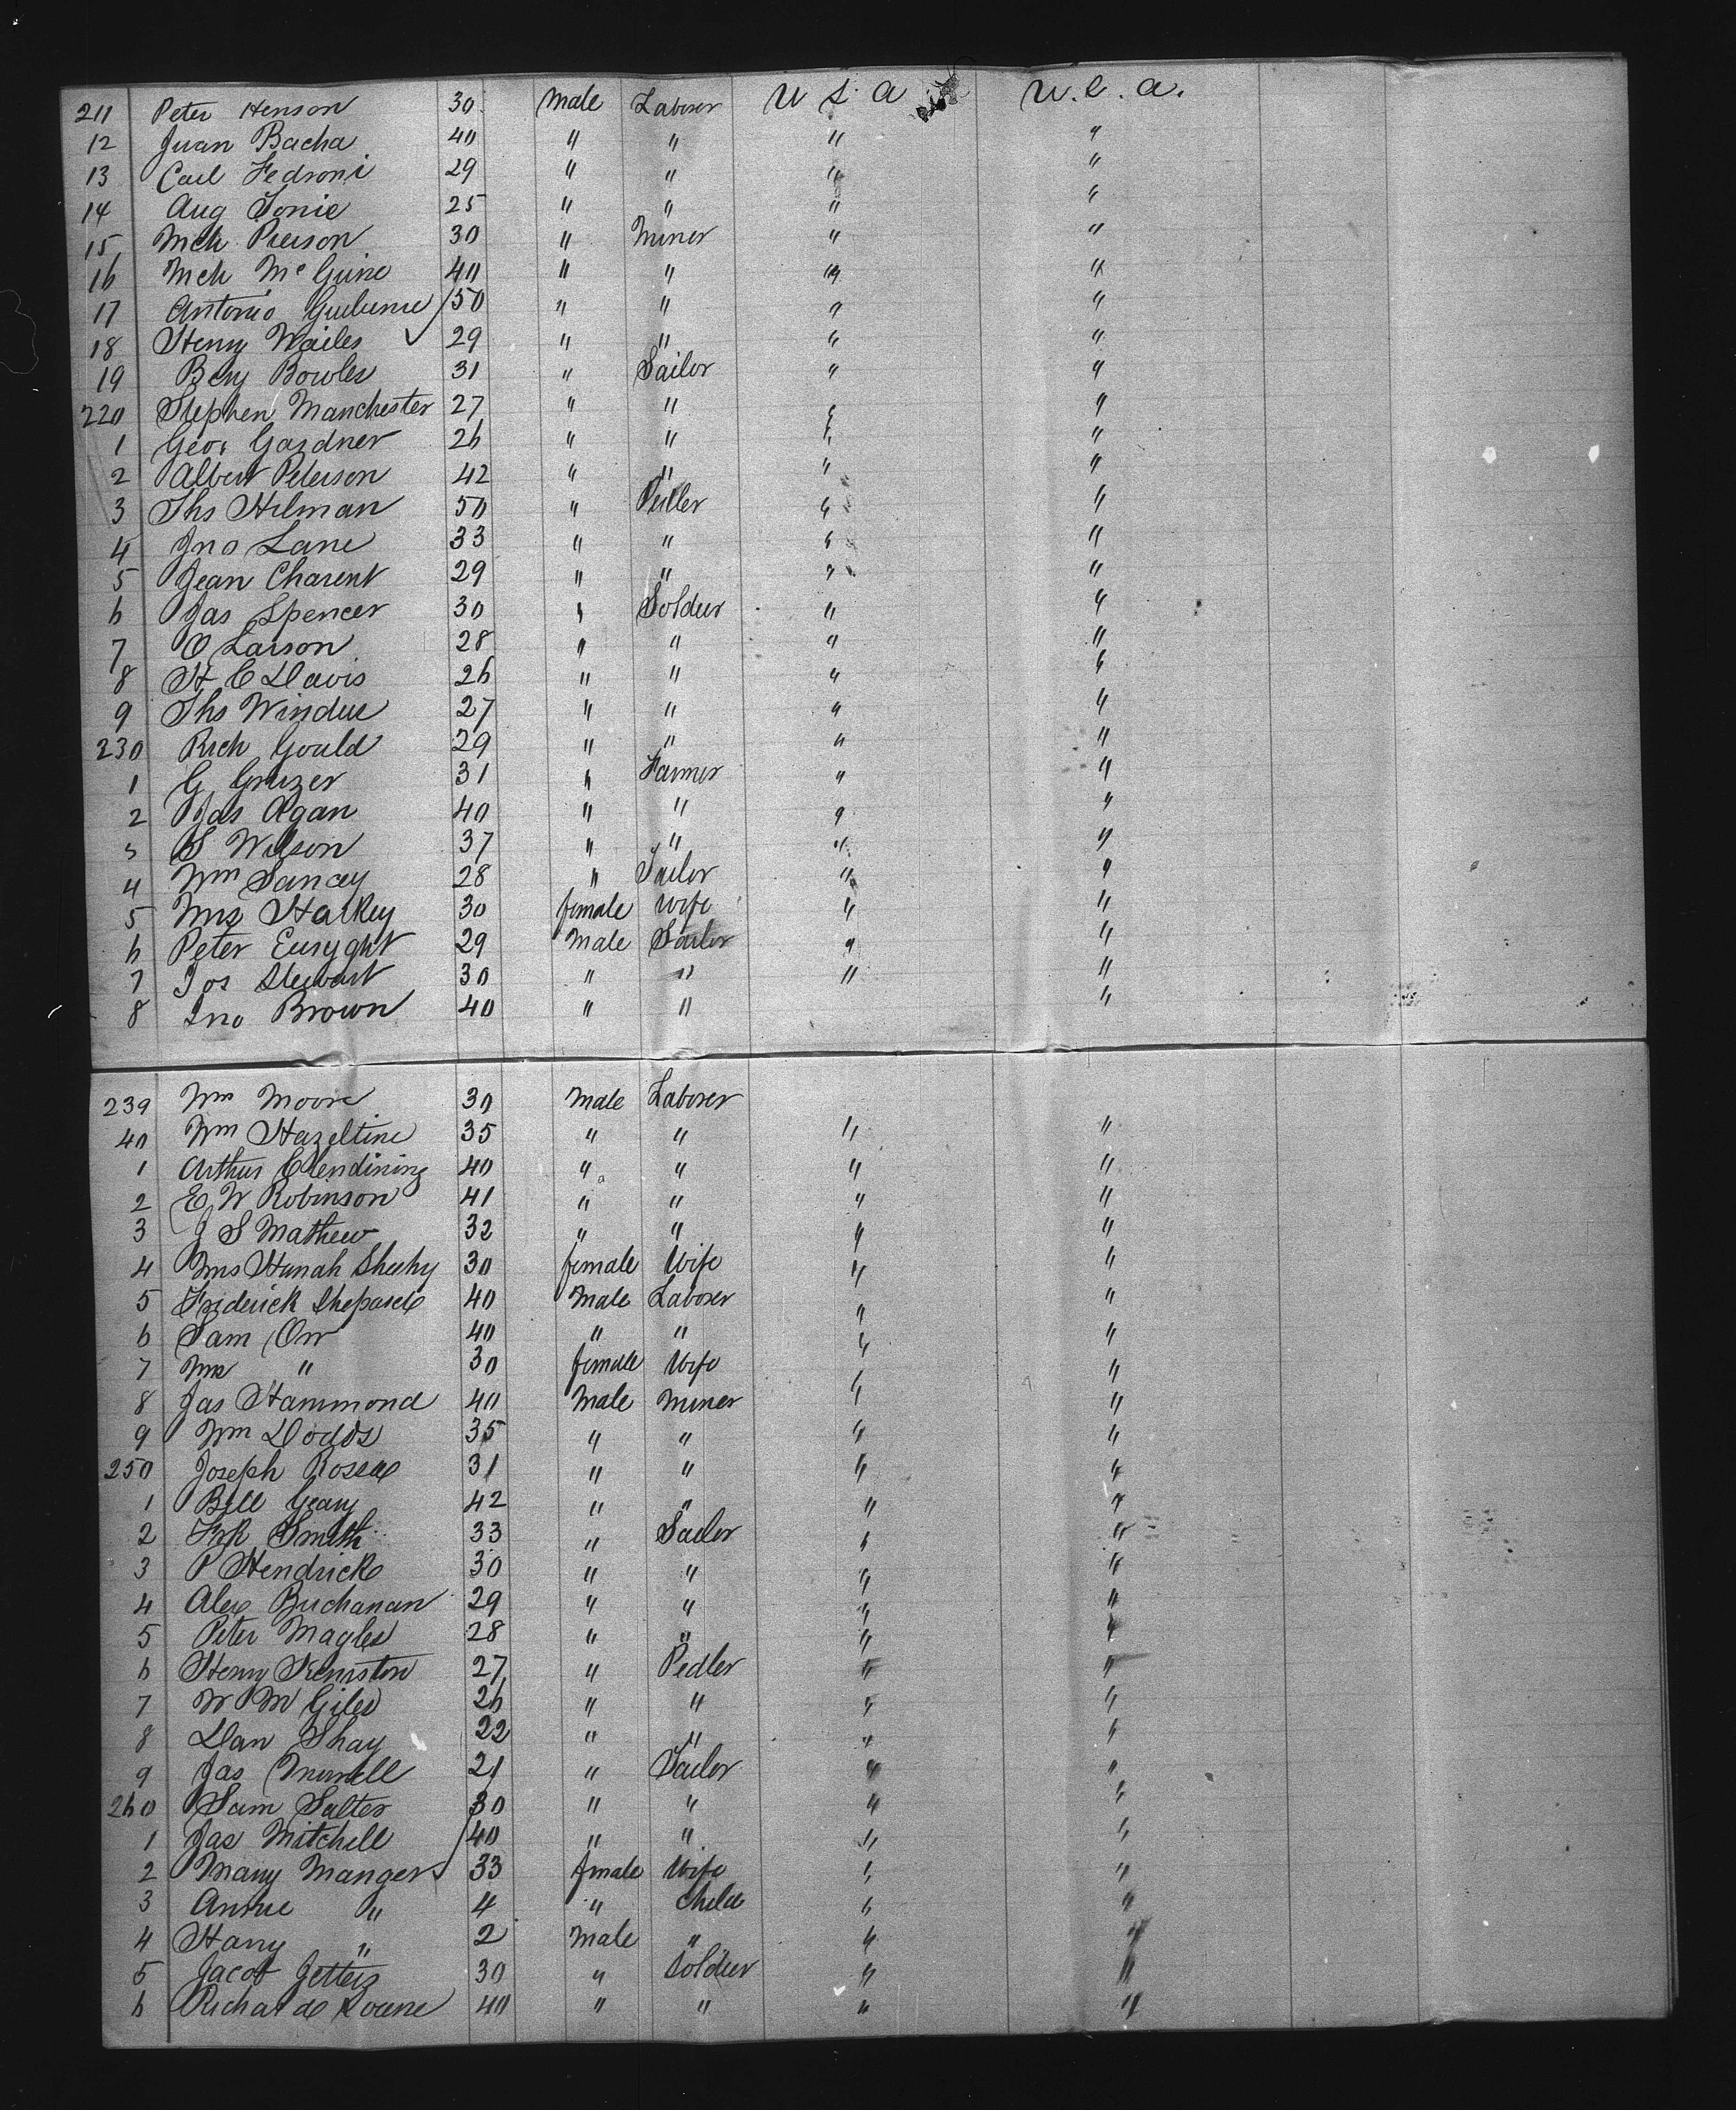 211 Peter Henson 30 Male Laborer U S. A U. S. A.
12 Juan Bacha 40 " " " "
13 Carl Fedroni 29 " " " "
14 Aug Tonie 25 " " " "
15 Mch Pierson 30 " Miner " "
16 Mch McGuire 40 " " " "
17 Antonio 50 " " " "
18 Henry Wailes 29 " " " "
19 Benj Bowles 31 " Sailor " "
220 Stephen Manchester 27 " " " "
1 Geo. Gardner 26 " " " "
2 Albert Peterson 42 " " " "
3 Ths Hilman 50 " Pedler " "
4 Jno Lane 33 " " " "
5 Jean Charent 29 " " " "
6 Jas Spencer 30 " Soldier " "
7 O Larson 28 " " " "
8 H C Davis 26 " " " "
9 Ths Windus 27 " " " "
230 Rich Gould 29 " " " "
1 G Gruzer 31 " Farmer " "
2 Jas Agan 40 " " " "
3 S Wilson 37 " " " "
4 Wm Sancy 28 " Tailor " "
5 Mrs Harkey 30 female Wife " "
6 Peter 29 Male Sailor " "
7 Jos Stewart 30 " " " "
8 Jno Brown 40 " " "
239 Wm Moore 30 Male Laborer
40 Wm Hazeltine 35 " " " "
1 Arthur Clendining 40 " " " "
2 E W Robinson 41 " " " "
3 J S Mathew 32 " " " "
4 Mrs Hanah Sheehy 30 female Wife " "
5 Friderick Shepard 40 Male Laborer " "
6 Sam Orr 40 " " " "
7 Mrs " 30 female Wife " "
8 Jas Hammond 40 Male Miner " "
9 Wm Dodds 35 " " " "
250 Joseph Roscoe 31 " " " "
1 Bill Geary 42 " " " "
2 Frk Smith 33 " Sailor " "
3 P Hendrick 30 " " " "
4 Alex Buchanan 29 " " " "
5 Peter Magles 28 " " " "
6 Henry Keniston 27 " Pedler " "
7 W M Giles 26 " " " "
8 Dan Shay 22 " " " "
9 Jas Murrell 21 " Tailor " "
260 Sam Salter 30 " " " "
1 Jas Mitchell 40 " " " "
2 Mary Manger 33 female Wife " "
3 Annie " 4 " Child " "
4 Harry " 2 Male " " "
5 Jacob Jetters 30 " Soldier " "
6 Richard 40 " " " "